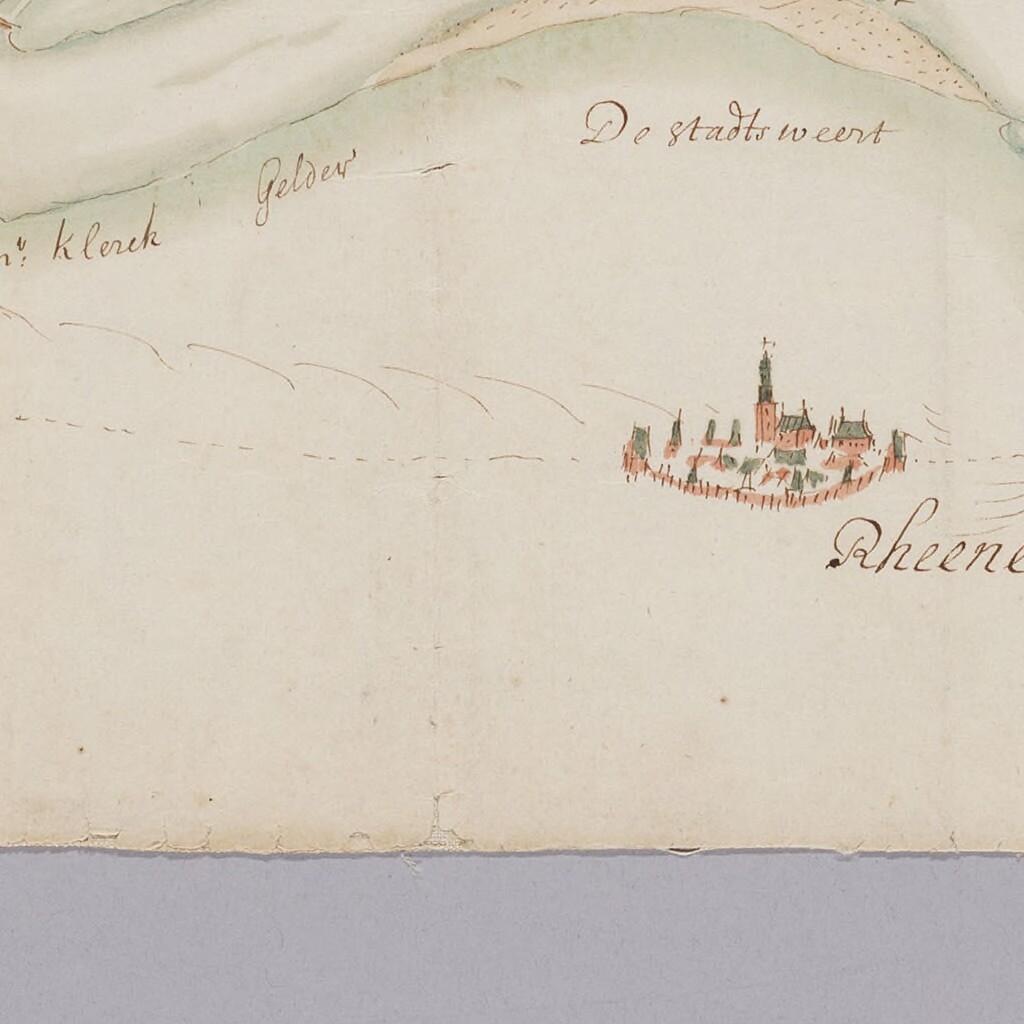 De stadts weert
Gelder
Klerck
Rheene